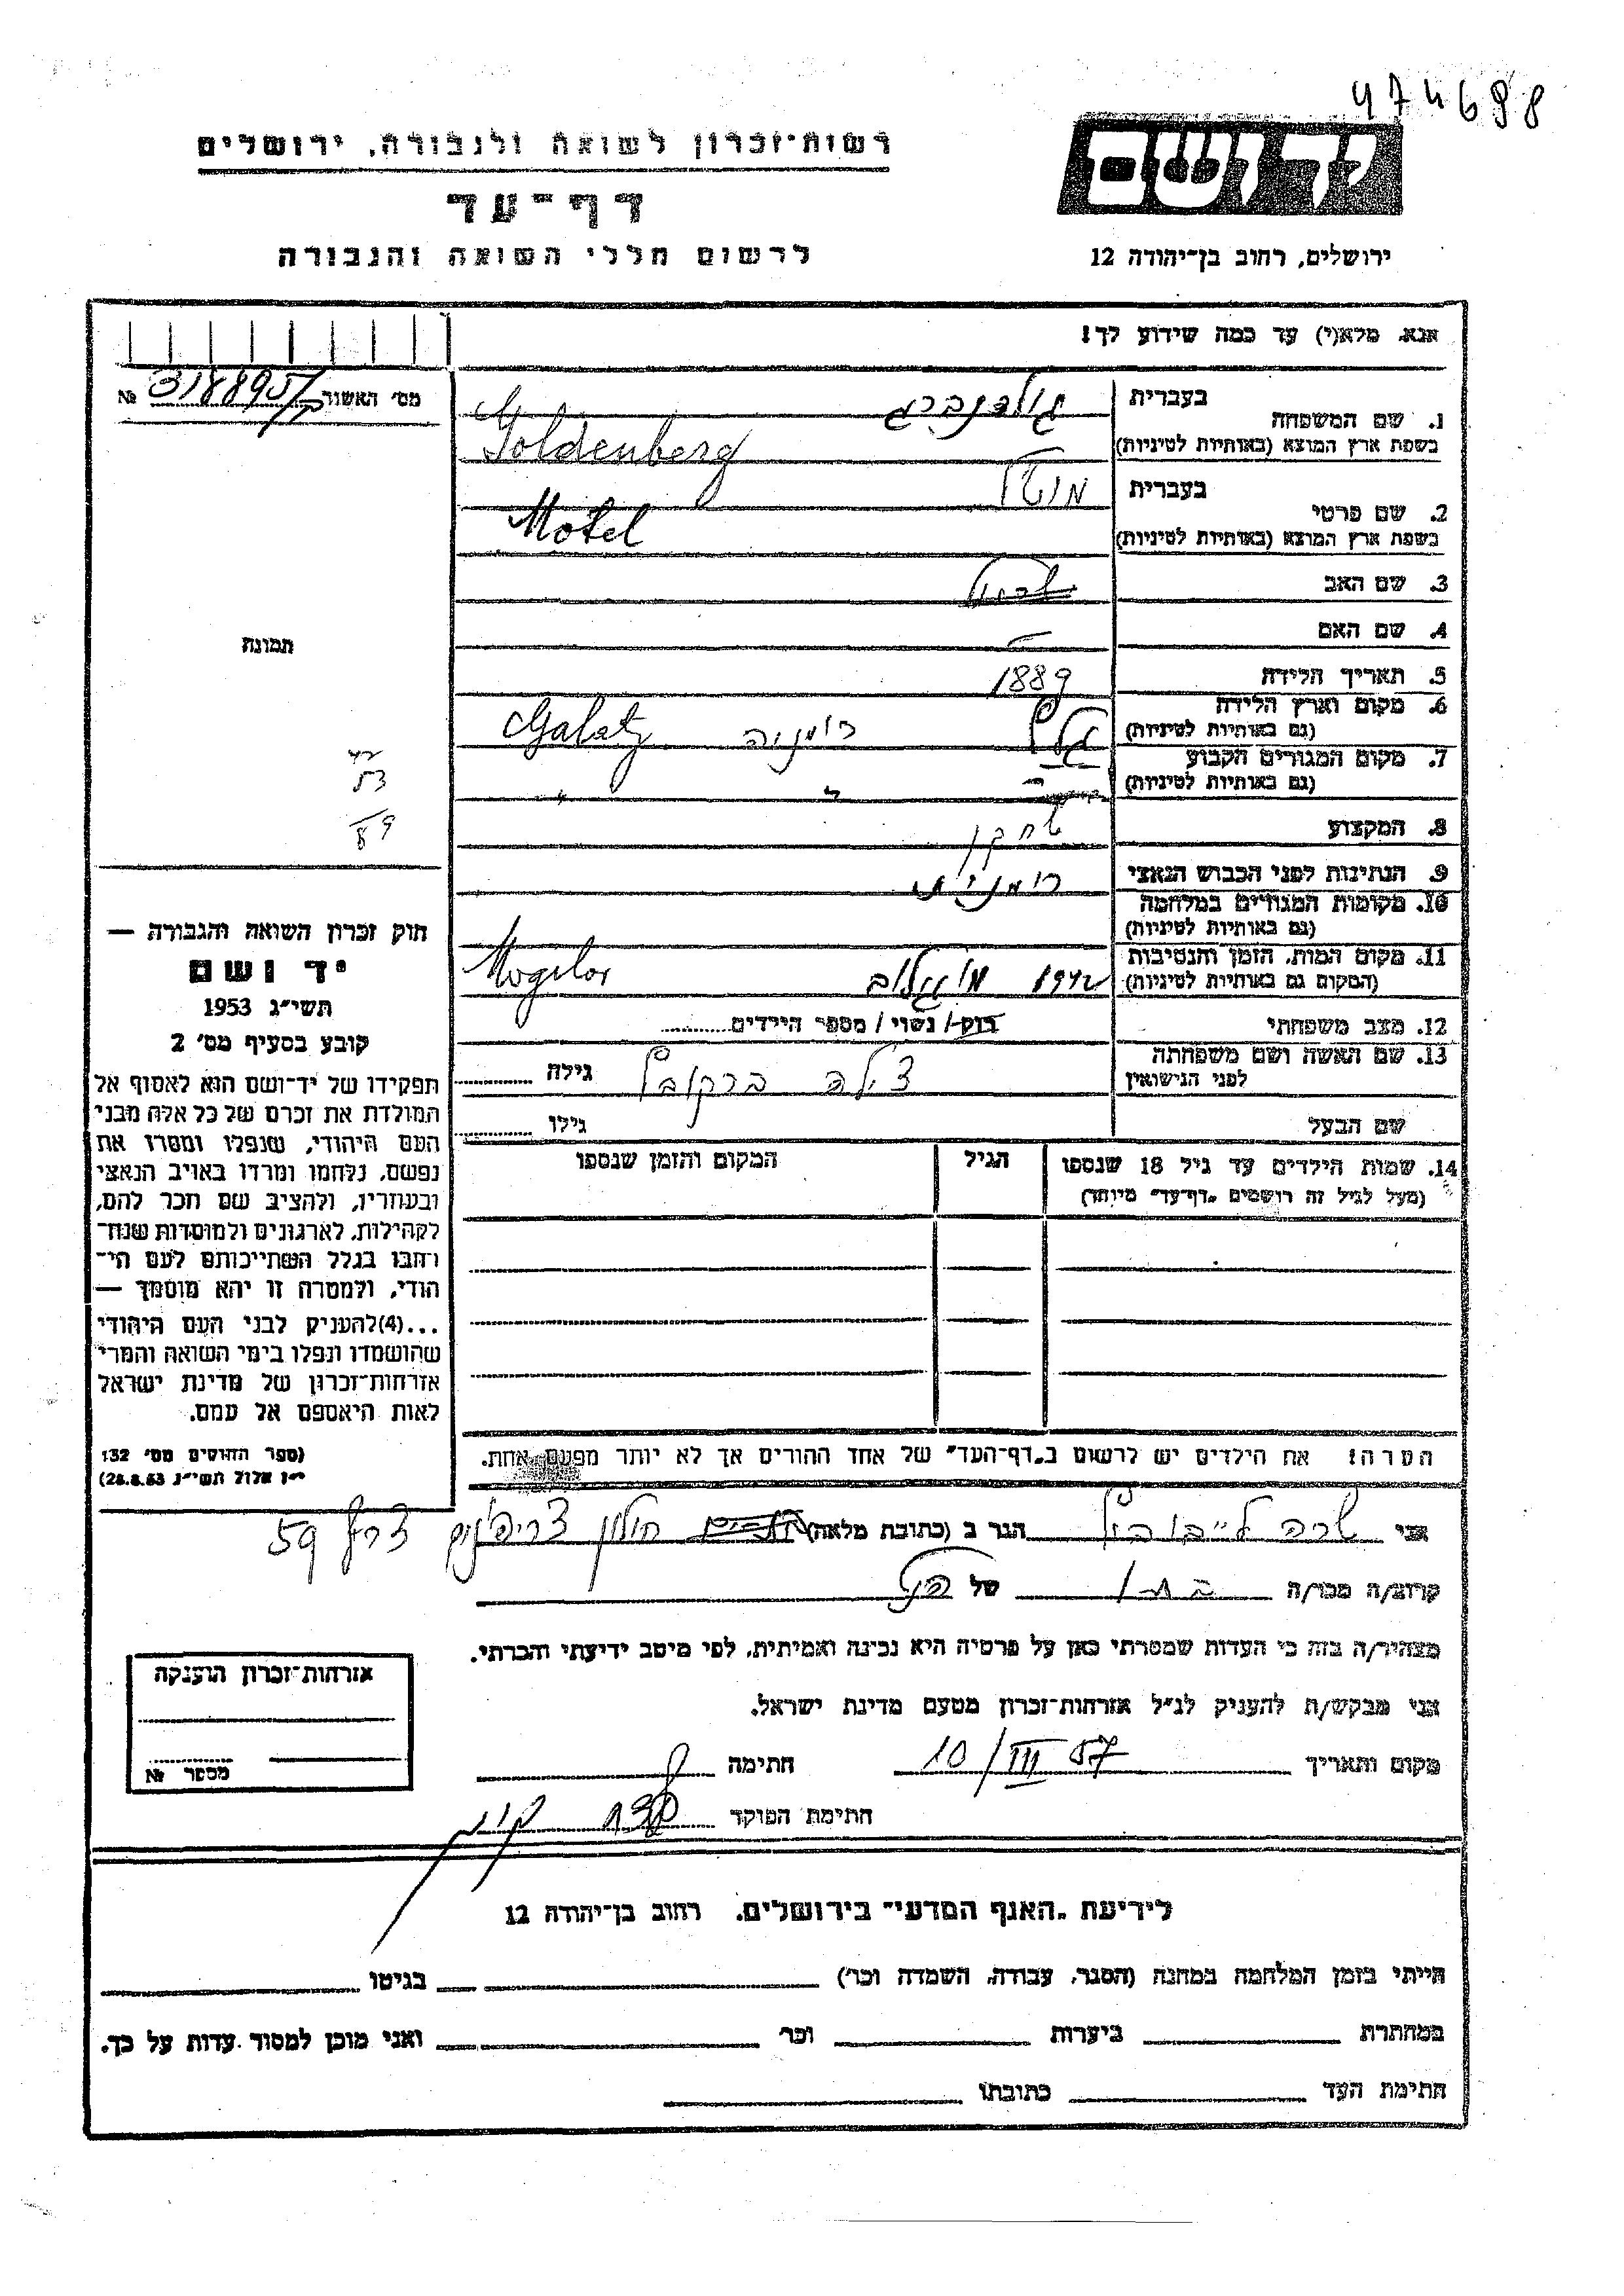 474698
יד ושם
רשות־זכרון לשואה ולגבורה, ירושלים
דף־עד
לרשום חללי השואה והגבורה
ירושלים, רחוב בן־יהודה 12
אנא, מלא(י) עד כמה שידוע לך!
מס׳ האשור 318895 №
תמונה
42
53
89
חוק זכרון השואה והגבורה —
יד ושם
תשי״ג 1953
קובע בסעיף מס׳ 2
תפקידו של יד־ושם הוא לאסוף אל
המולדת את זכרם של כל אלה מבני
העם היהודי, שנפלו ומסרו את
נפשם, נלחמו ומרדו באויב הנאצי
ובעוזריו, ולהציב שם וזכר להם,
לקהילות, לארגונים ולמוסדות שנח־
רחבו בגלל השתייכותם לעם הי־
הודי, ולמטרה זו יהא מוסמך —
...(4)להעניק לבני העם היהודי
שהושמדו ונפלו בימי השואה והמרי
אזרחות־זכרון של מדינת ישראל
לאות היאספם אל עמם.
(ספר החוקים מס׳ 132
י״ז אלול תשי״ג 28.8.53)
בעברית גולדנברג
1. שם המשפחה
בשפת ארץ המוצא (באותיות לטיניות) Goldenberg
בעברית מוטל
2. שם פרטי
בשפת ארץ המוצא (באותיות לטיניות) Motel
3. שם האב
4. שם האם —
5. תאריך הלידה 1889
6. מקום וארץ הלידה
(גם באותיות לטיניות) גלץ רומניה Galatz
7. מקום המגורים הקבוע
(גם באותיות לטיניות) " "
8. המקצוע שחקן
9. הנתינות לפני הכבוש הנאצי רומנית
10. מקומות המגורים במלחמה
(גם באותיות לטיניות)
11. מקום המות, הזמן והנסיבות
(המקום גם באותיות לטיניות) 1942 מוגילוב Mogilov
12. מצב משפחתי רווק / נשוי / מספר הילדים
13. שם האשה ושם משפחתה
לפני הנישואין צילה ברקוביץ גילה
שם הבעל גילו
14. שמות הילדים עד גיל 18 שנספו הגיל המקום והזמן שנספו
(מעל לגיל זה רושמים „דף־עד״ מיוחד)
הערה! את הילדים יש לרשום ב„דף־העד״ של אחד ההורים אך לא יותר מפעם אחת.
אני שרה ליבוביץ הגר ב (כתובת מלאה) חולון צריפים צריף 59
קרוב/ה מכר/ה של
מצהיר/ה בזה כי העדות שמסרתי כאן על פרטיה היא נכונה ואמיתית, לפי מיטב ידיעתי והכרתי.
אני מבקש/ת להעניק לנ״ל אזרחות־זכרון מטעם מדינת ישראל.
מקום ותאריך 10/III 57 חתימה
חתימת הפוקד
אזרחות־זכרון הוענקה
מספר №
לידיעת „האגף המדעי״ בירושלים. רחוב בן־יהודה 12
הייתי בזמן המלחמה במחנה (הסגר, עבודה, השמדה וכו׳) בגיטו
במחתרת ביערות וכו׳ ואני מוכן למסור עדות על כך.
חתימת העד כתובתו